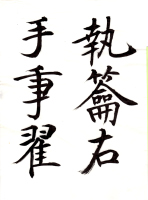 執籥右
手秉翟